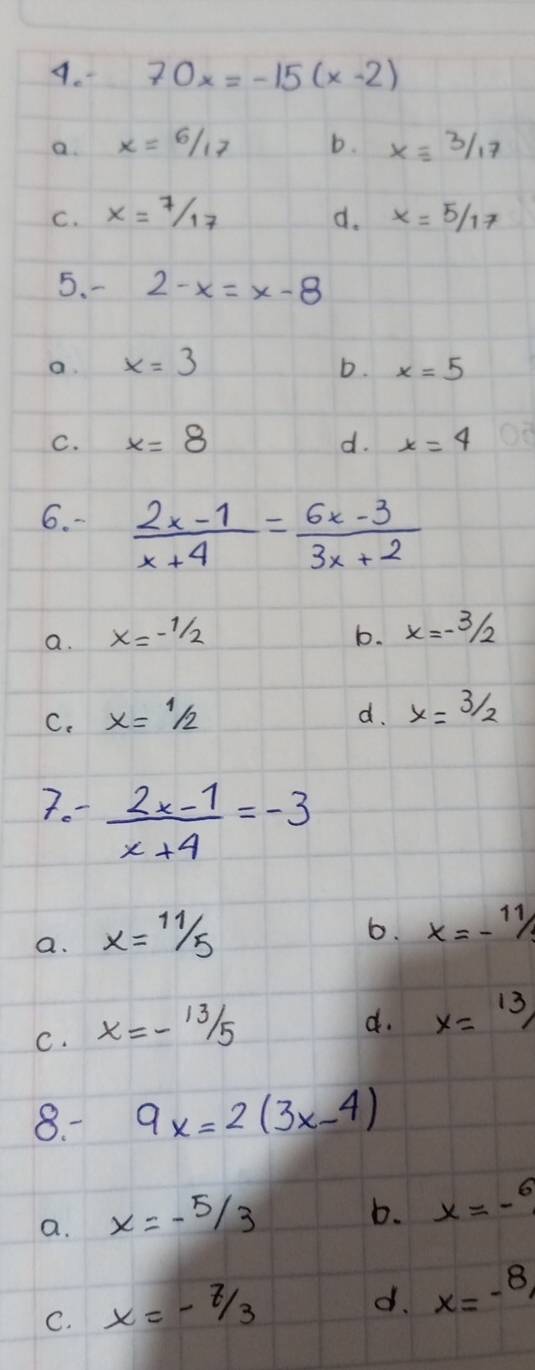 4.- 70x = -15(x-2)
a. x = 6/17 b. x = 3/17
c. x = 7/17 d. x = 5/17
5.- 2-x = x-8
a. x = 3 b. x = 5
c. x = 8 d. x = 4
6.- (2x-1)/(x+4) = (6x-3)/(3x+2)
a. x = -1/2 b. x = -3/2
c. x = 1/2 d. x = 3/2
7.- (2x-1)/(x+4) = -3
a. x = 11/5 b. x = -11/
c. x = -13/5 d. x = 13/
8.- 9x = 2(3x-4)
a. x = -5/3 b. x = -6
c. x = -7/3 d. x = -8/